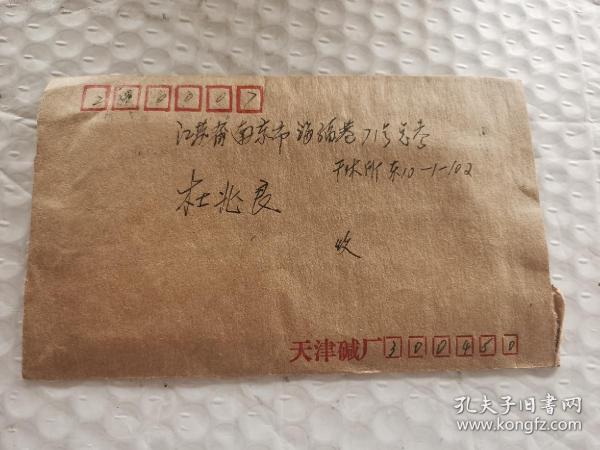 210007
江苏省南京市海福巷71号
干休所东10-1-102
杜兆良
收
天津碱厂300450
孔夫子旧书网
www.kongfz.com